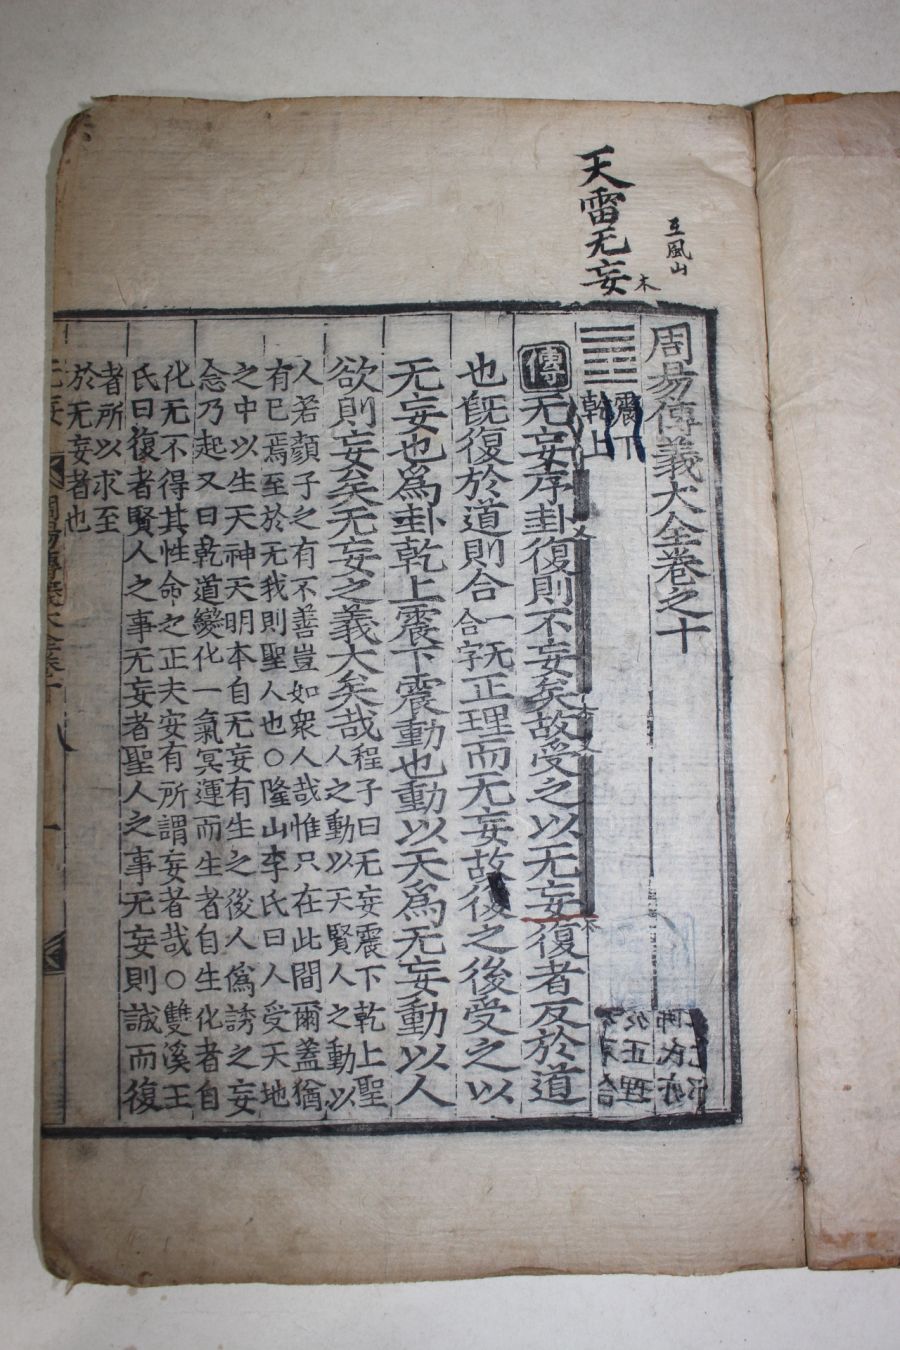 天雷无妄
互風山
木
周易傳義大全卷之十
震下
乾上
傳
无妄序卦復則不妄矣故受之以无妄復者反於道
也旣復於道則合
一无
合字
正理而无妄故復之後受之以
无妄也爲卦乾上震下震動也動以天爲无妄動以人
欲則妄矣无妄之義大矣哉
程子曰无妄震下乾上聖
人之動以天賢人之動以
人若顏子之有不善豈如衆人哉惟只在此間爾蓋猶
有已焉至於无我則聖人也○隆山李氏曰人受天地
之中以生天神天明本自无妄有生之後人僞誘之妄
念乃起又曰乾道變化一氣冥運而生者自生化者自
化无不得其性命之正夫安有所謂妄者哉○雙溪王
氏曰復者賢人之事无妄者聖人之事无妄則誠而復
者所以求至
於无妄者也